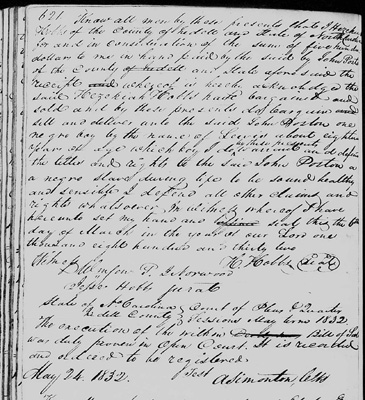 621 Know all men by these presents that I Hezekiah
Hobbs of the County of Iredell and State of North Carolina
for and in consideration of the sum of five hundred
dollars to me in hand paid by the said by John Poston
of the County of Iredell and State aforesaid the
receipt and whereof is hereby acknowledged the
said Hezekiah Hobbs hath bargained and
sold and by these presents do bargain and
sell and deliver unto the said John Poston one
negro boy by the name of Lewis about eighteen
years of age which boy I do warrant and defend
by these presents
the title and rights to the said John Poston a
a negro slave during life to be sound healthy
and sensible I defend all other claims and
rights whatsoever In witness whereof I have
hereunto set my hand and seal this the 6th
day of March in the year of our Lord one
thousand eight hundred and thirty two
Witness H. Hobbs
P. Norwood
Jesse Hobbs jurat
State of N. Carolina Court of Pleas & Quarter
Iredell County Sessions May term 1832
The execution of the within Bill of Sale
was duly proven in Open Court. It is recorded
and ordered to be registered
May 24. 1832. Test A Simonton Clk